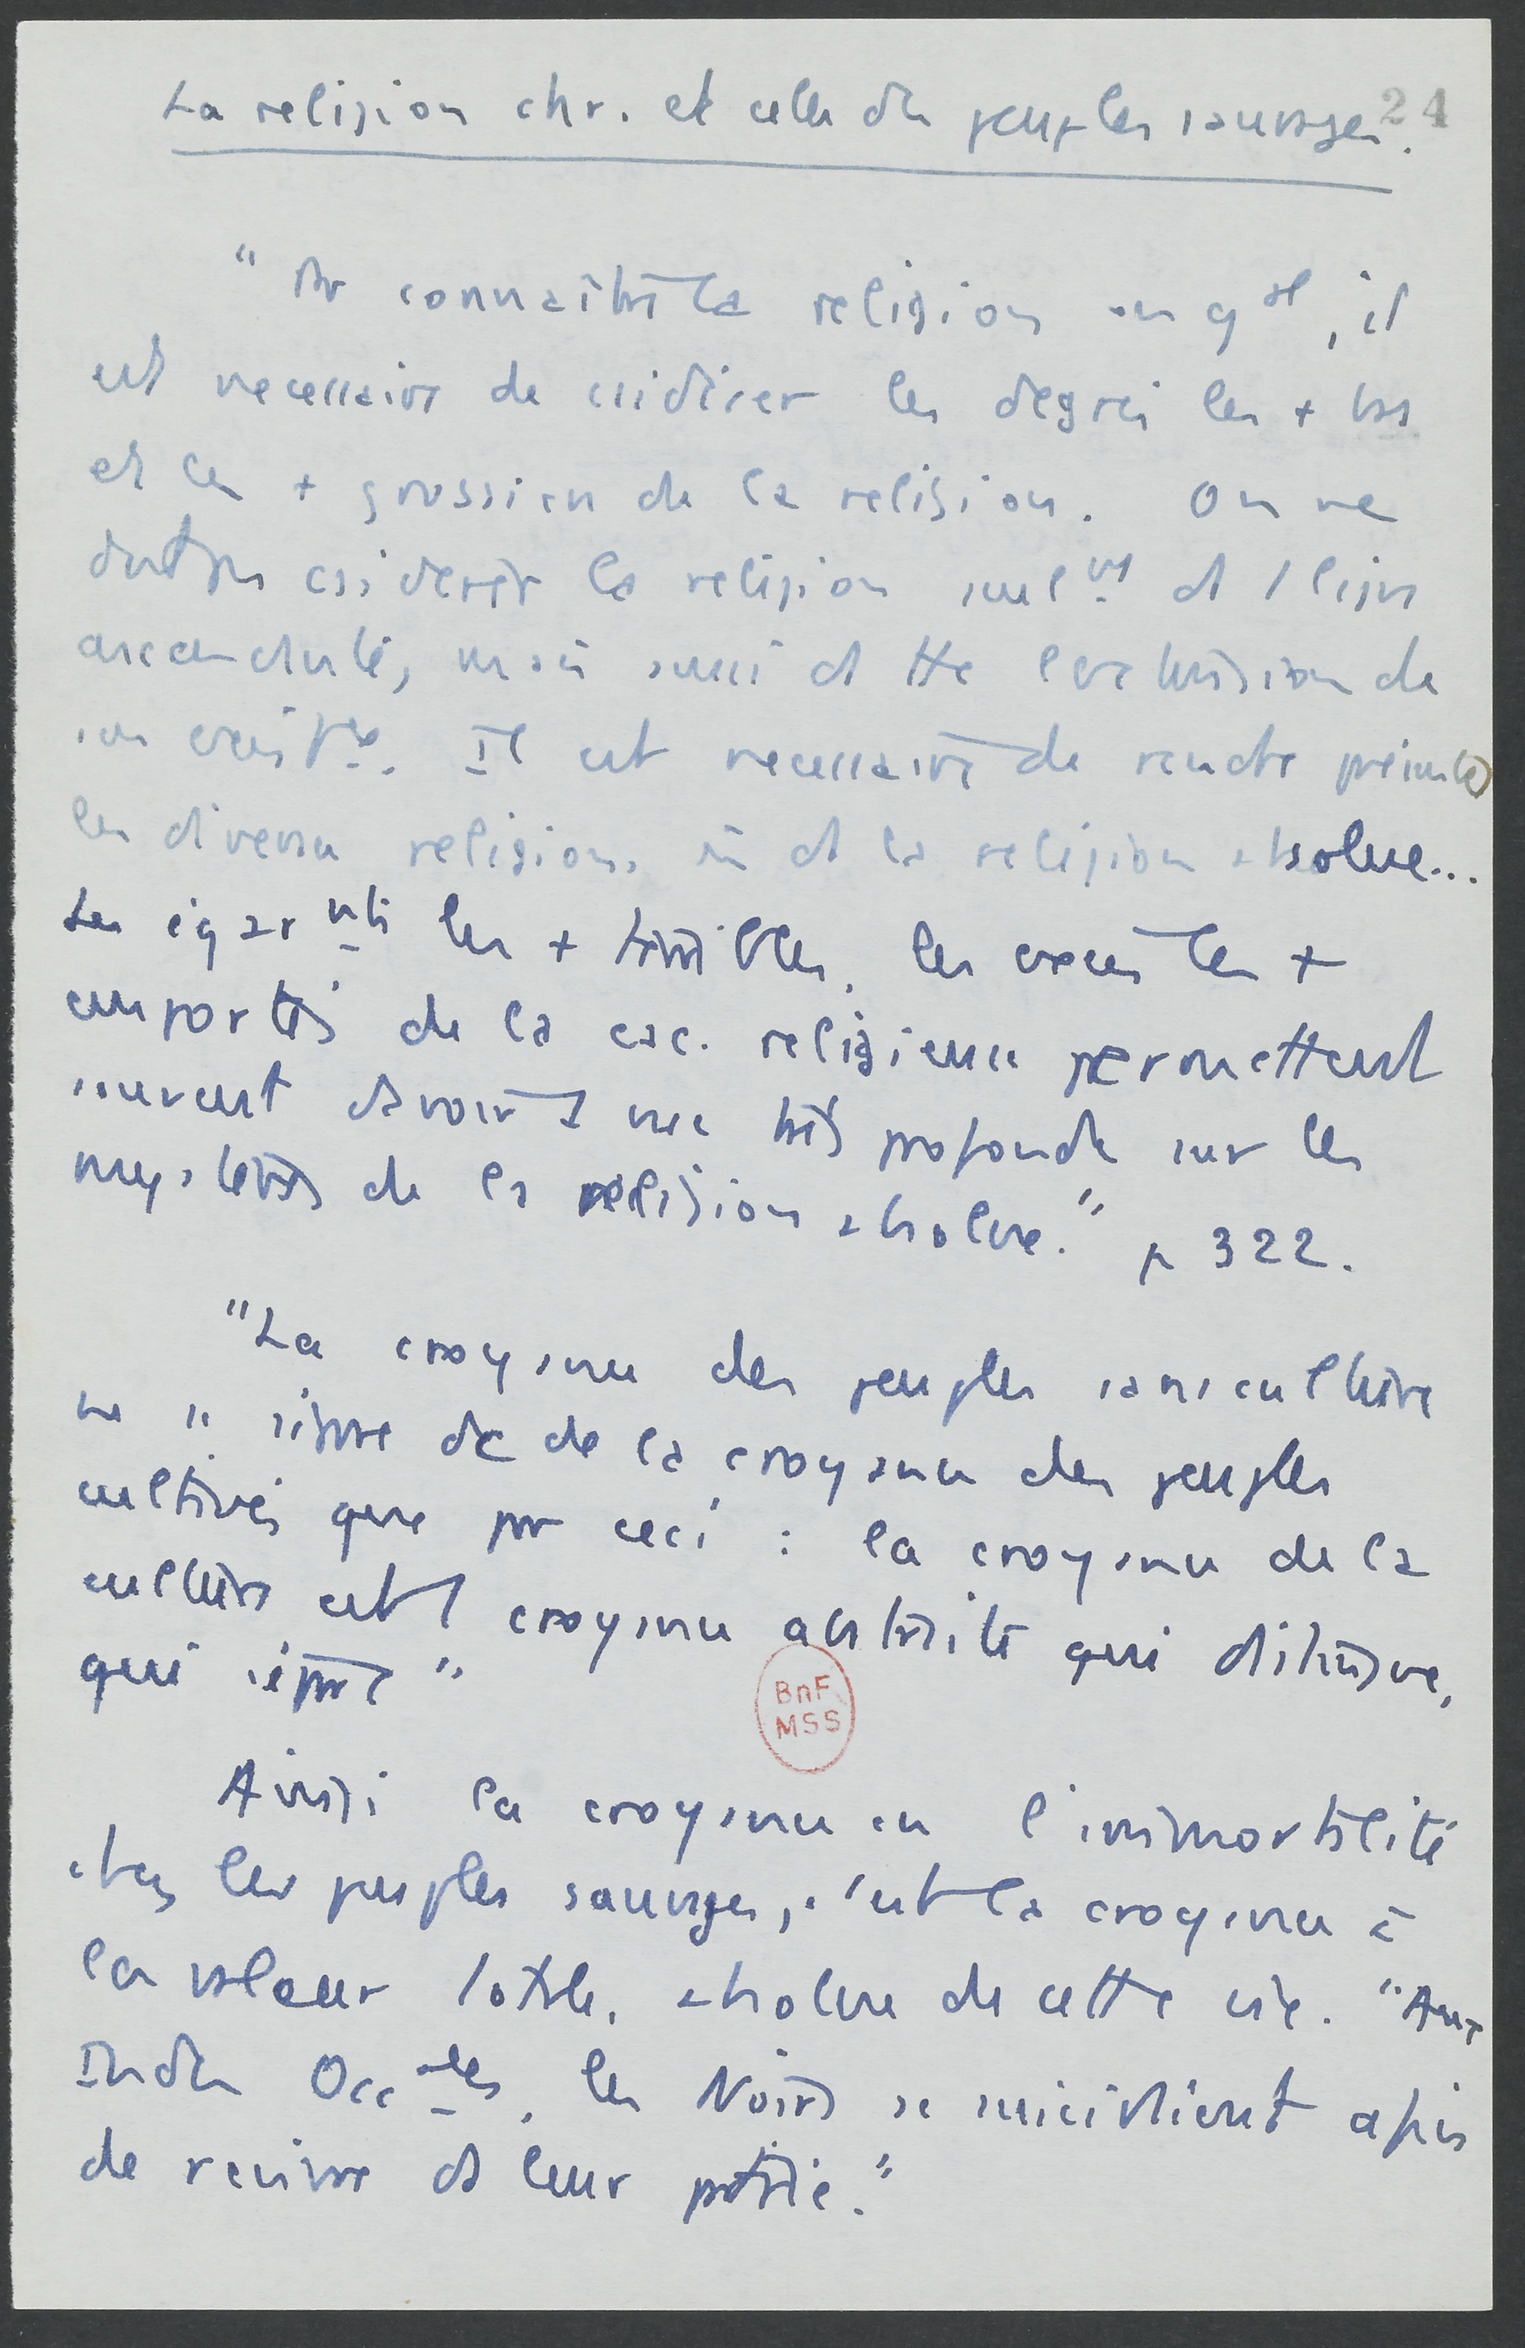 La religion chr. et celle des peuples sauvages. 24
" Pr connaître la religion en gal, il
est necessaire de csidérer les degrés les + bas
et les + grossiers de la religion. On ne
doit pas csiderer la religion seult ds 1 ligne
ascendante, mais aussi ds tte l'extension de
son exist. Il est necessaire de rendre présentes
les diverses religions ds la religion absolue...
Les égarmts les + terribles, les excès les +
emportés de la csc. religieuse permettent
souvent d'avoir 1 vue très profonde sur les
mystères de la religion absolue." p 322.
"La croyance des peuples sans culture
ne se sépare dc de la croyance des peuples
cultivés que par ceci : la croyance de la
culture est 1 croyance abstraite qui distingue,
qui sépare "
BnF
MSS
Ainsi la croyance en l'immortalité
chez les peuples sauvages, c'est la croyance à
la valeur totale, absolue de cette vie. "Aux
Indes Occales, les Noirs se suicidaient afin
de revivre ds leur patrie."